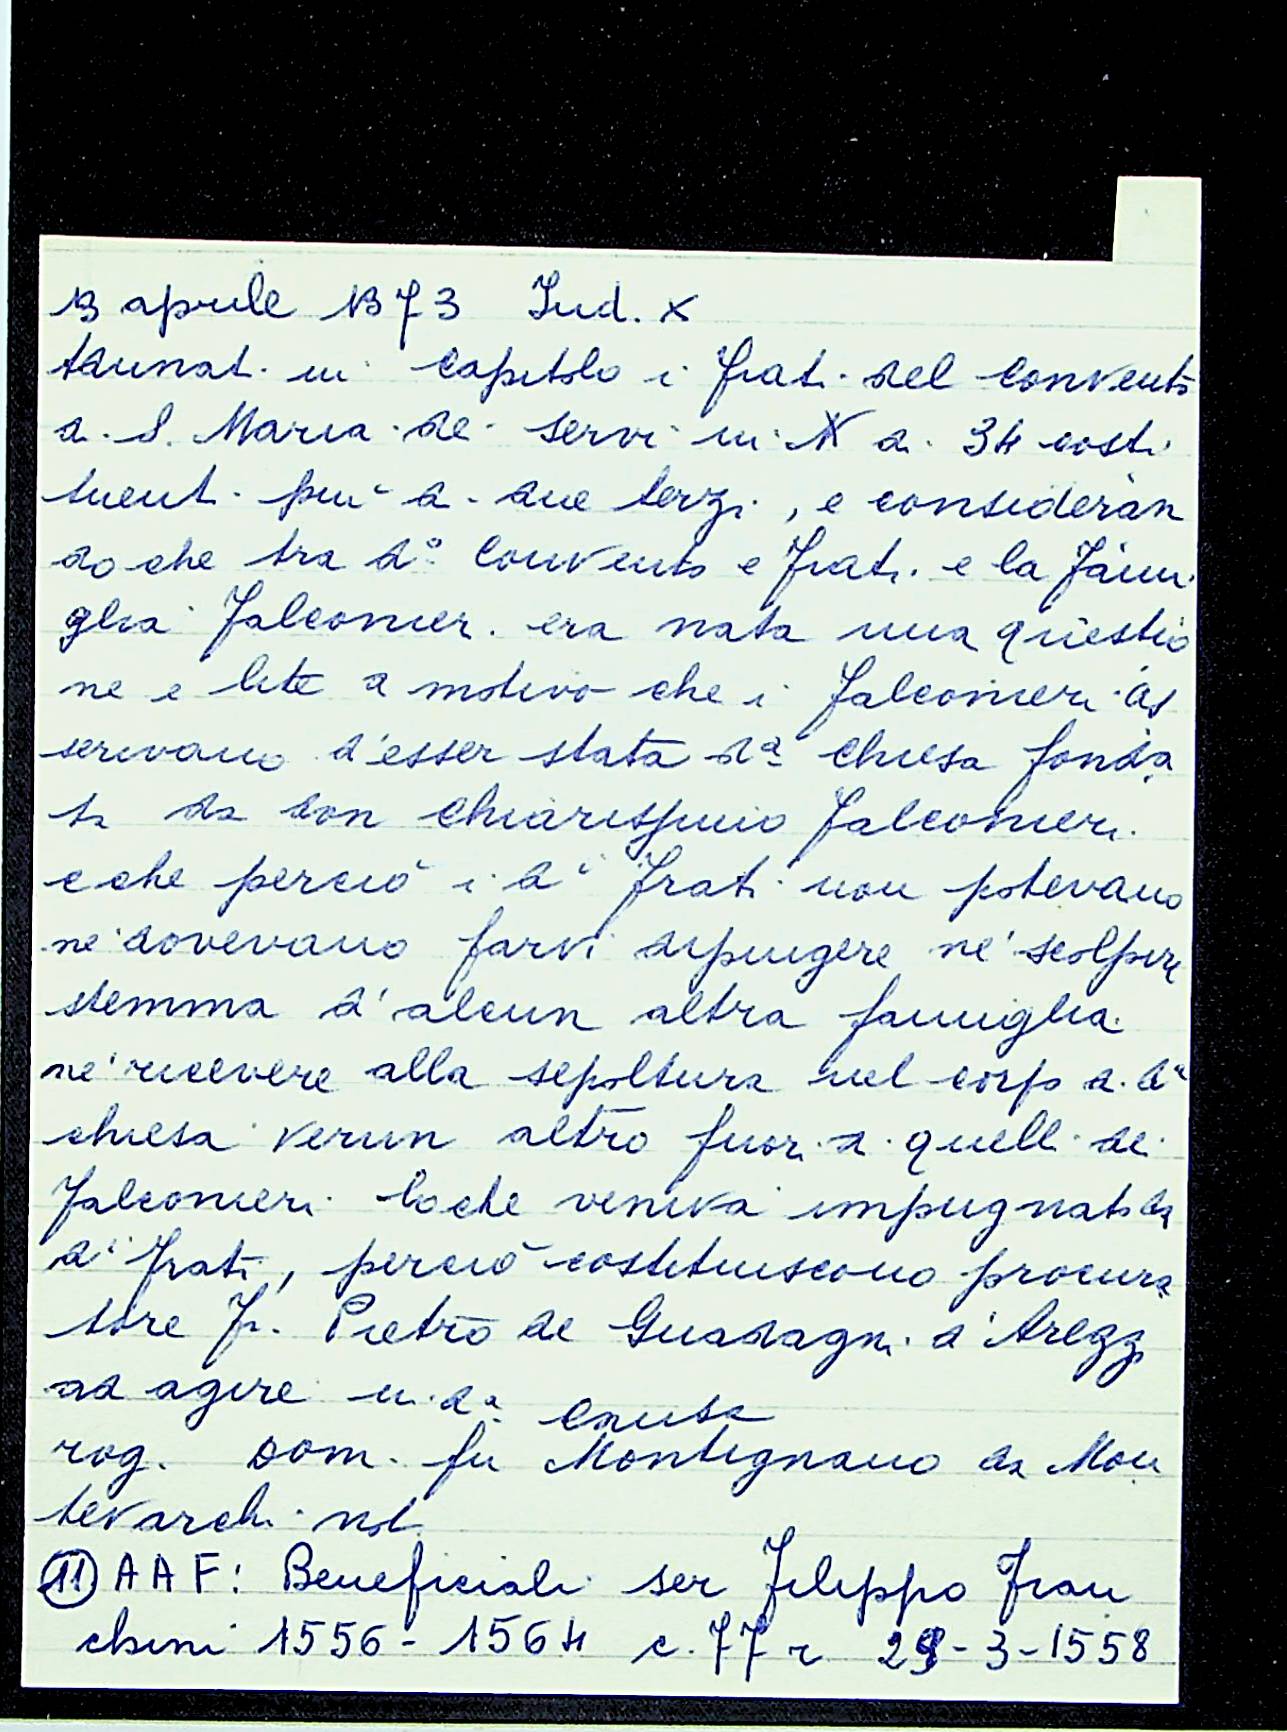 13 aprile 1373 Ind. X
Adunati in capitolo i frati del convento
di S. Maria dei servi in N di 34 costi
tuenti più di due terzi, e consideran
do che tra d° convento e frati e la fami
glia Falconieri era nata una questio
ne e lite a motivo che i Falconieri as
serivano d'esser stata dª chiesa fonda
ta da don Chiarissimo Falconieri
e che perciò i dⁱ frati non potevano
né dovevano farvi dipingere né scolpire
stemma d'alcun altra famiglia
né ricevere alla sepoltura nel corpo di dª
chiesa verun altro fuori di quelli dei
Falconieri loche veniva impugnato da
dⁱ frati, perciò costituiscono procura
tore fr. Pietro de Guadagni d'Arezzo
ad agire in dª causa
rog. Dom. fu Montignano da Mon
tevarchi not.
(11) A A F: Beneficiali ser Filippo Fran
chini 1556 - 1564 c. 77 r 29-3-1558